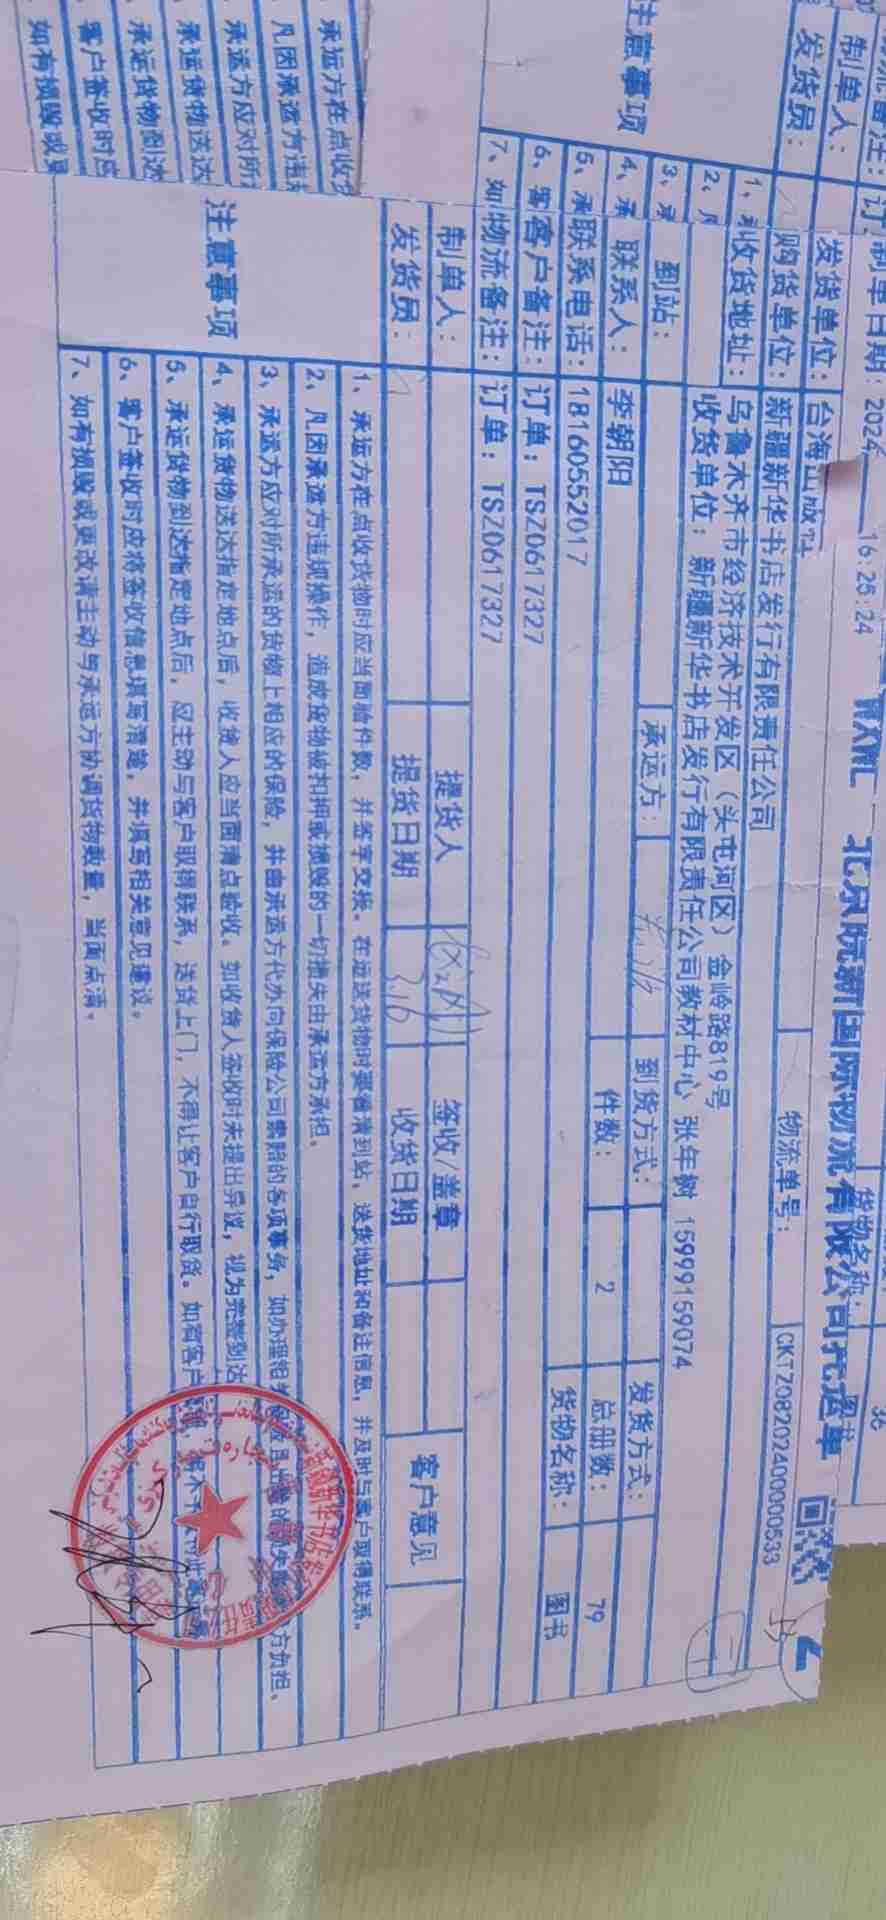 制单日期: 2024 16:25:24
WXWL 北京皖新国际物流有限公司托运单
发货单位: 台海出版社
购货单位: 新疆新华书店发行有限责任公司 物流单号: CKTZ08202400000533
收货地址: 乌鲁木齐市经济技术开发区（头屯河区）金岭路819号
收货单位: 新疆新华书店发行有限责任公司教材中心 张年树 15999159074
到站: 承运方: 到货方式: 发货方式:
联系人: 李朝阳 件数: 2 总册数: 79
联系电话: 18160552017 货物名称: 图书
客户备注: 订单: TSZ0617327
物流备注: 订单: TSZ0617327
制单人: 提货人 签收/盖章 客户意见
发货员: 提货日期 3.16 收货日期
注意事项
1、承运方在点收货物时应当面验件数，并签字交接。在运送货物时要看清到站，送货地址和备注信息，并及时与客户取得联系。
2、凡因承运方违规操作，造成货物被扣押或损毁的一切损失由承运方承担。
3、承运方应对所承运的货物上相应的保险，并由承运方代办向保险公司索赔的各项事务，如办理相 方负担。
4、承运货物送达指定地点后，收货人应当面清点验收。如收货人签收时未提出异议，视为完整到达
5、承运货物到达指定地点后，应主动与客户取得联系，送货上门，不得让客户自行取货。如有客户
6、客户签收时应将签收信息填写清楚，并填写相关意见建议。
7、如有损毁或更改请主动与承运方协调货物数量，当面点清。
制单人:
发货员:
注意事项
承运方在点收货
凡因承运方违规
承运方应对所
承运货物送达
承运货物到达
客户签收时应
如有损毁或更
货物名称:
36